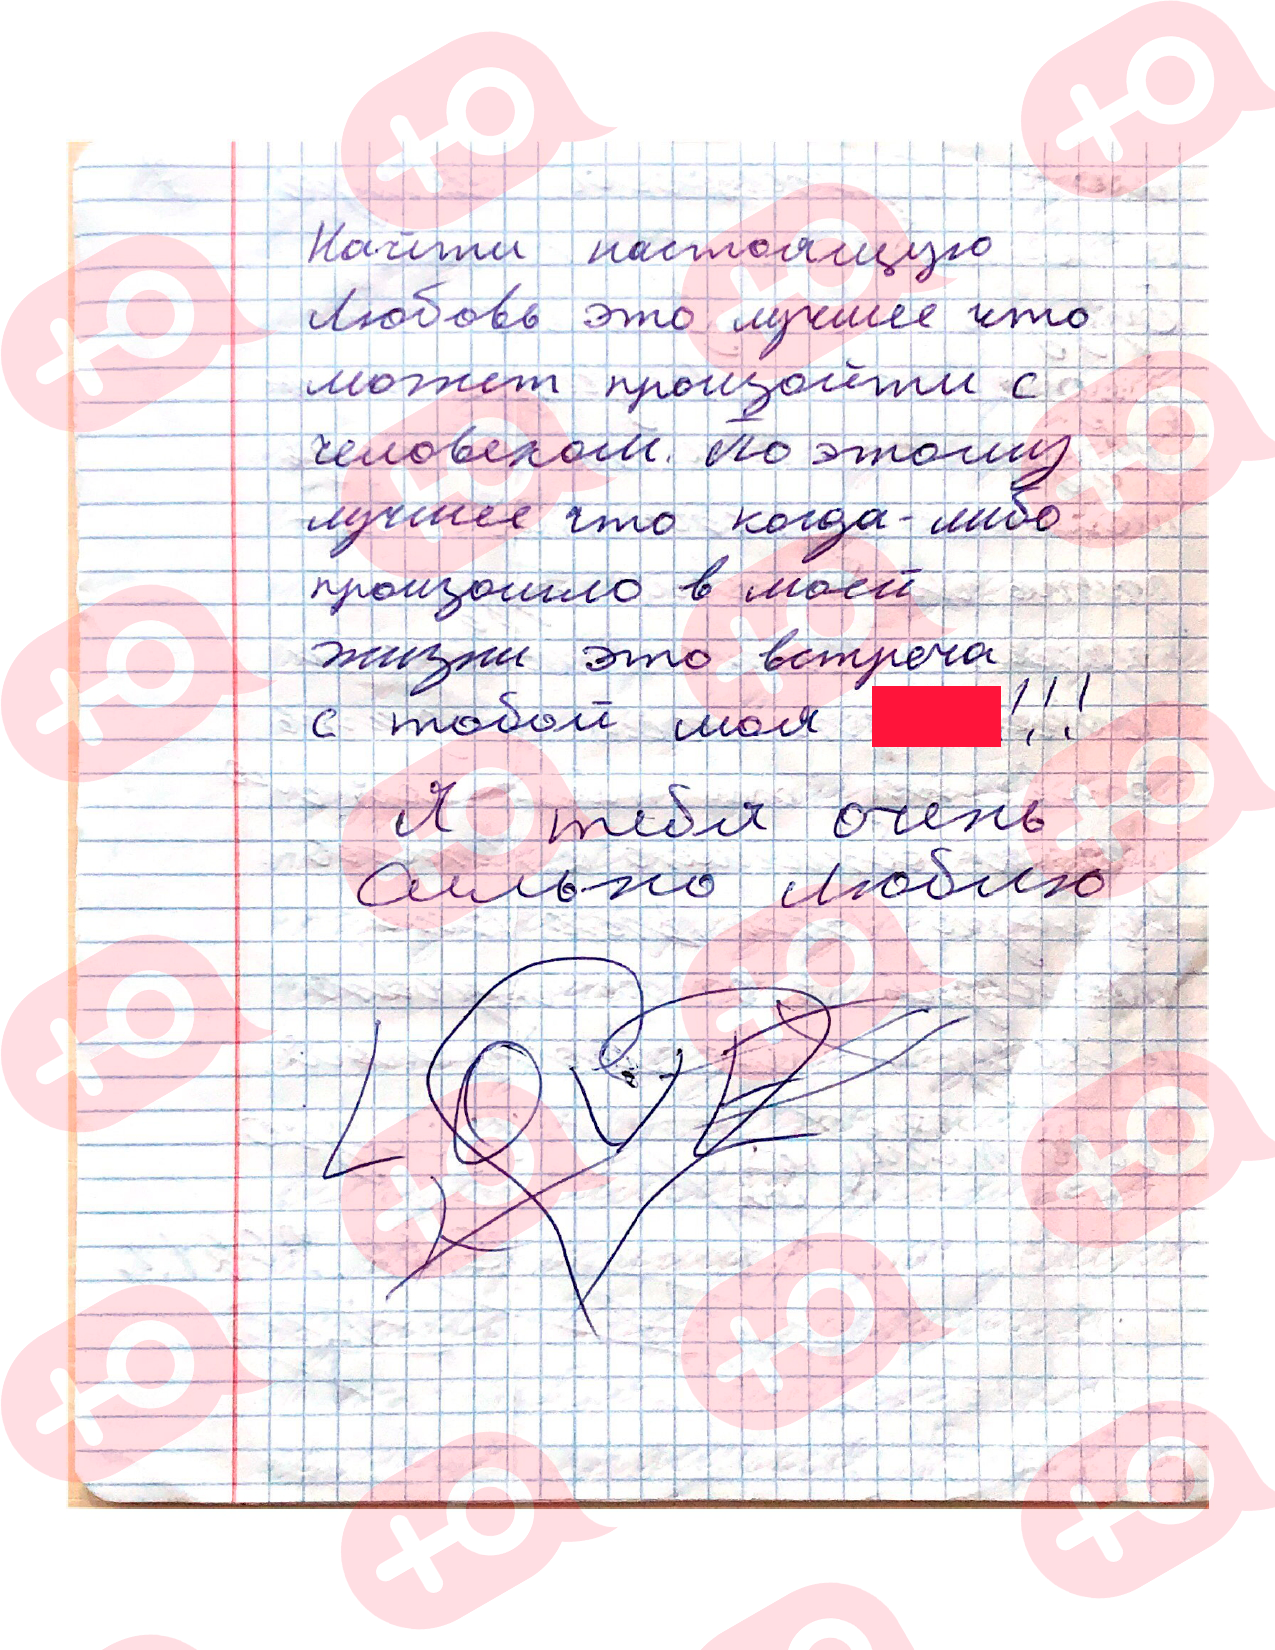 Найти настоящую
Любовь это лучшее что
может произойти с
человеком. По этому
лучшее что когда-либо
произошло в моей
жизни это встреча
с тобой моя !!!
Я тебя очень
Сильно Люблю
LOVE